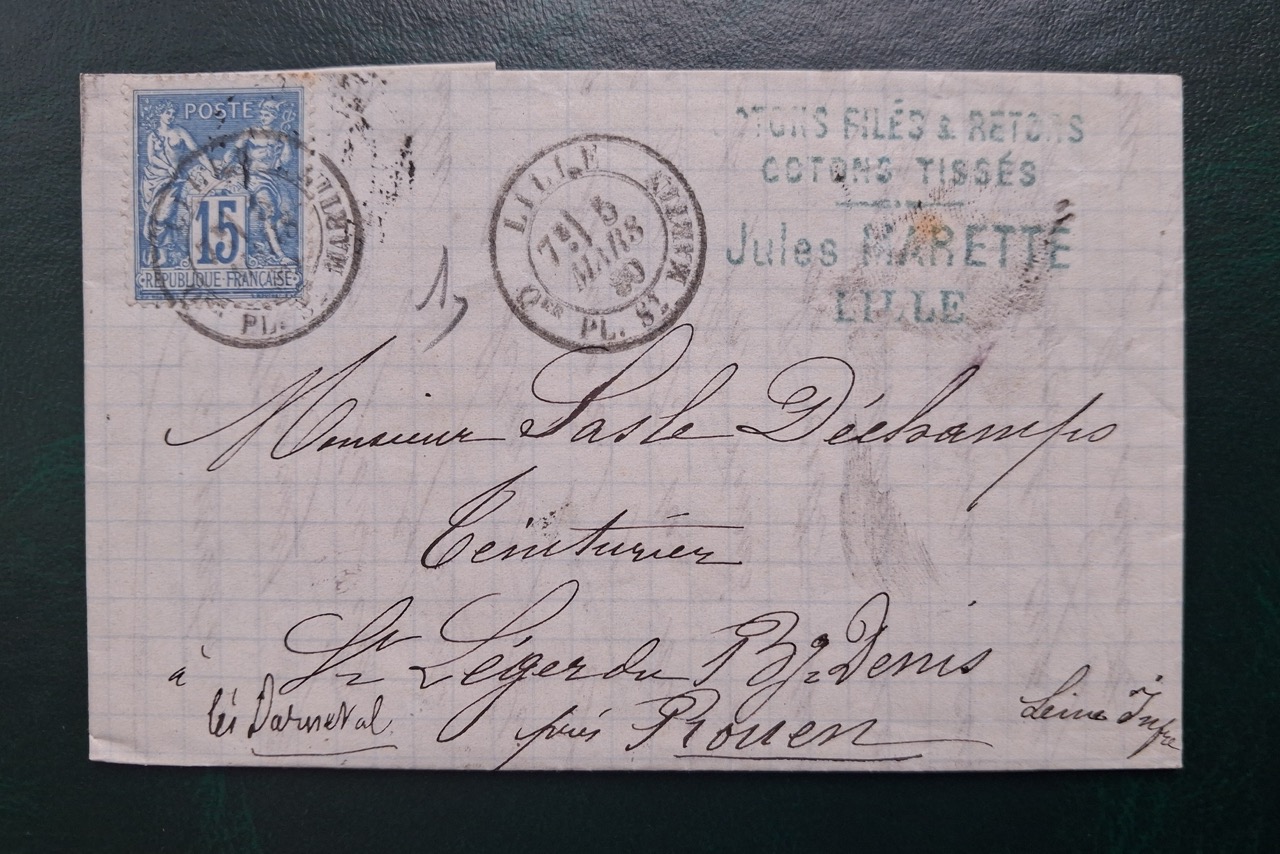 POSTE
15
RÉPUBLIQUE FRANÇAISE
PL. St
LILLE
7E 5
MARS
80
Qer PL. St MARTIN
COTONS FILÉS & RETORS
COTONS TISSÉS
Jules MARETTE
LILLE
Monsieur Sasle Déchamps
Teinturier
à St Léger du Bg Denis
lés Darnetal près Rouen
Seine Infre